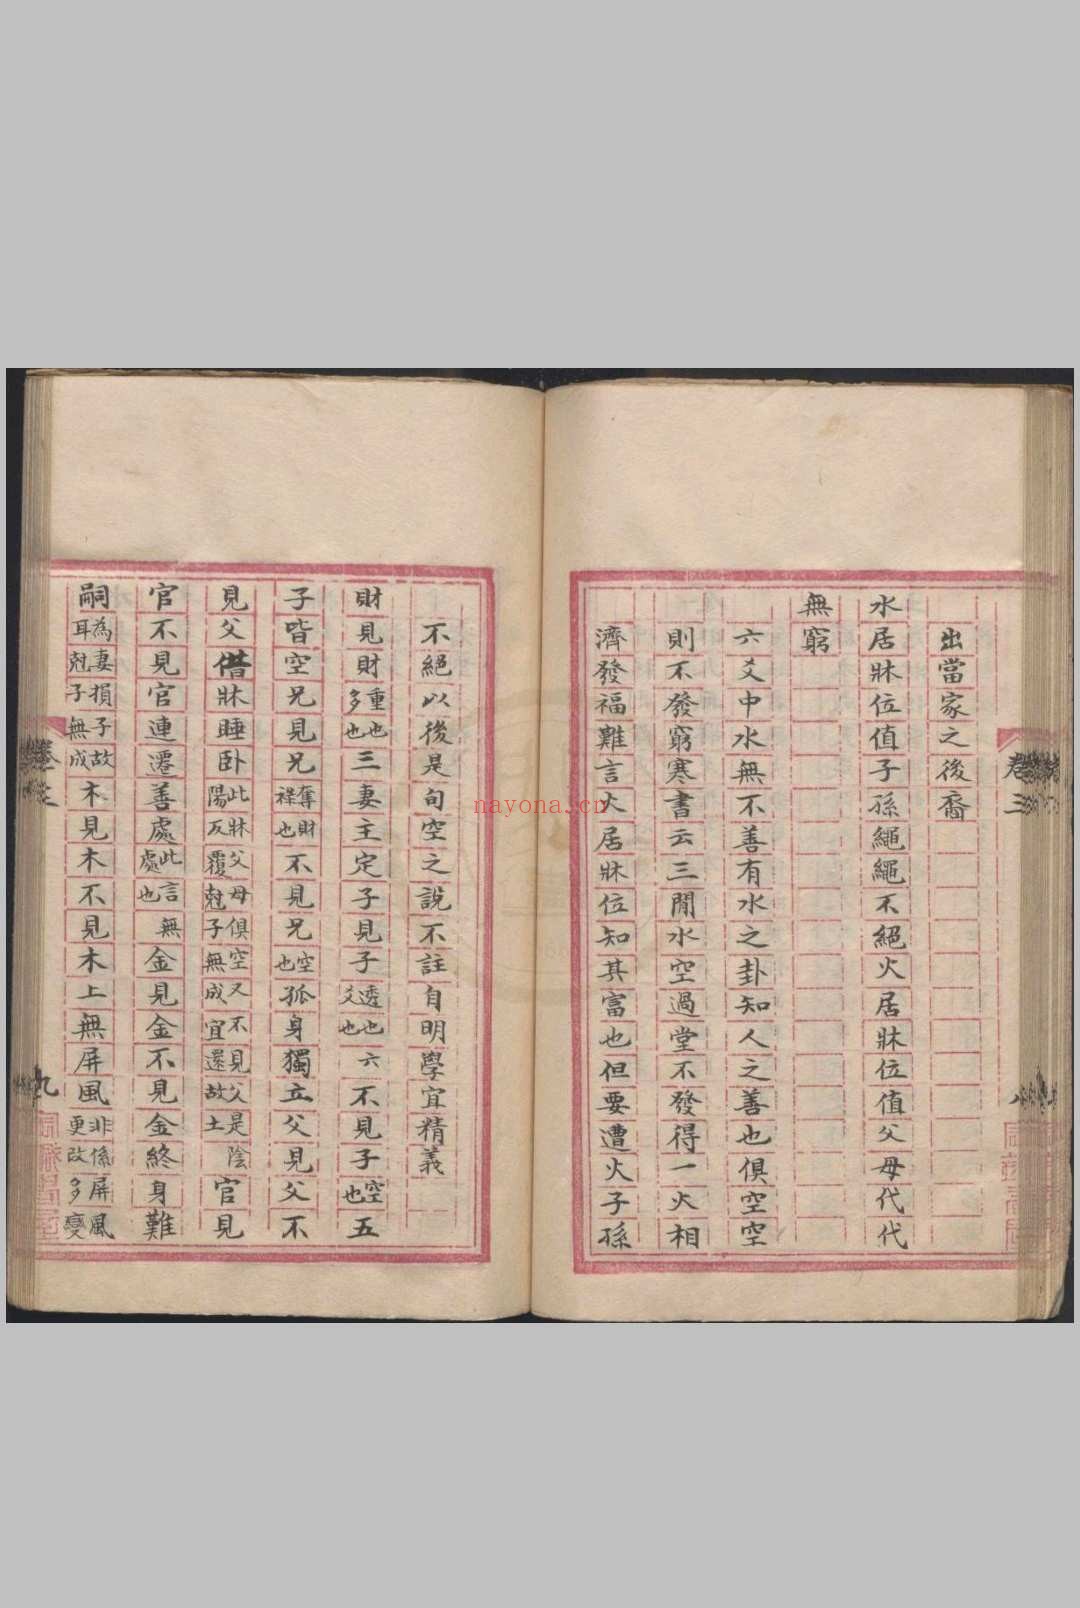 出當家之後裔
水居牀位值子孫繩繩不絕火居牀位值父母代代
無窮
六爻中水無不善有水之卦知人之善也俱空空
則不發窮寒書云三閒水空過堂不發得一火相
濟發福難言火居牀位知其富也但要遭火子孫
卷三
不絕以後是旬空之說不註自明學宜精義
財見財重也多也三妻主定子見子透也爻也六不見子空也五
子皆空兄見兄奪財祿也不見兄空也孤身獨立父見父不
見父借牀睡卧此牀父母俱空又不見父是陰陽反覆尅子無成宜還故土官見
官不見官連遷善處此言無處也金見金不見金終身難
嗣為妻損子故耳尅子無成木見木不見木上無屏風非係屏風更改多變
九
nayona.cn